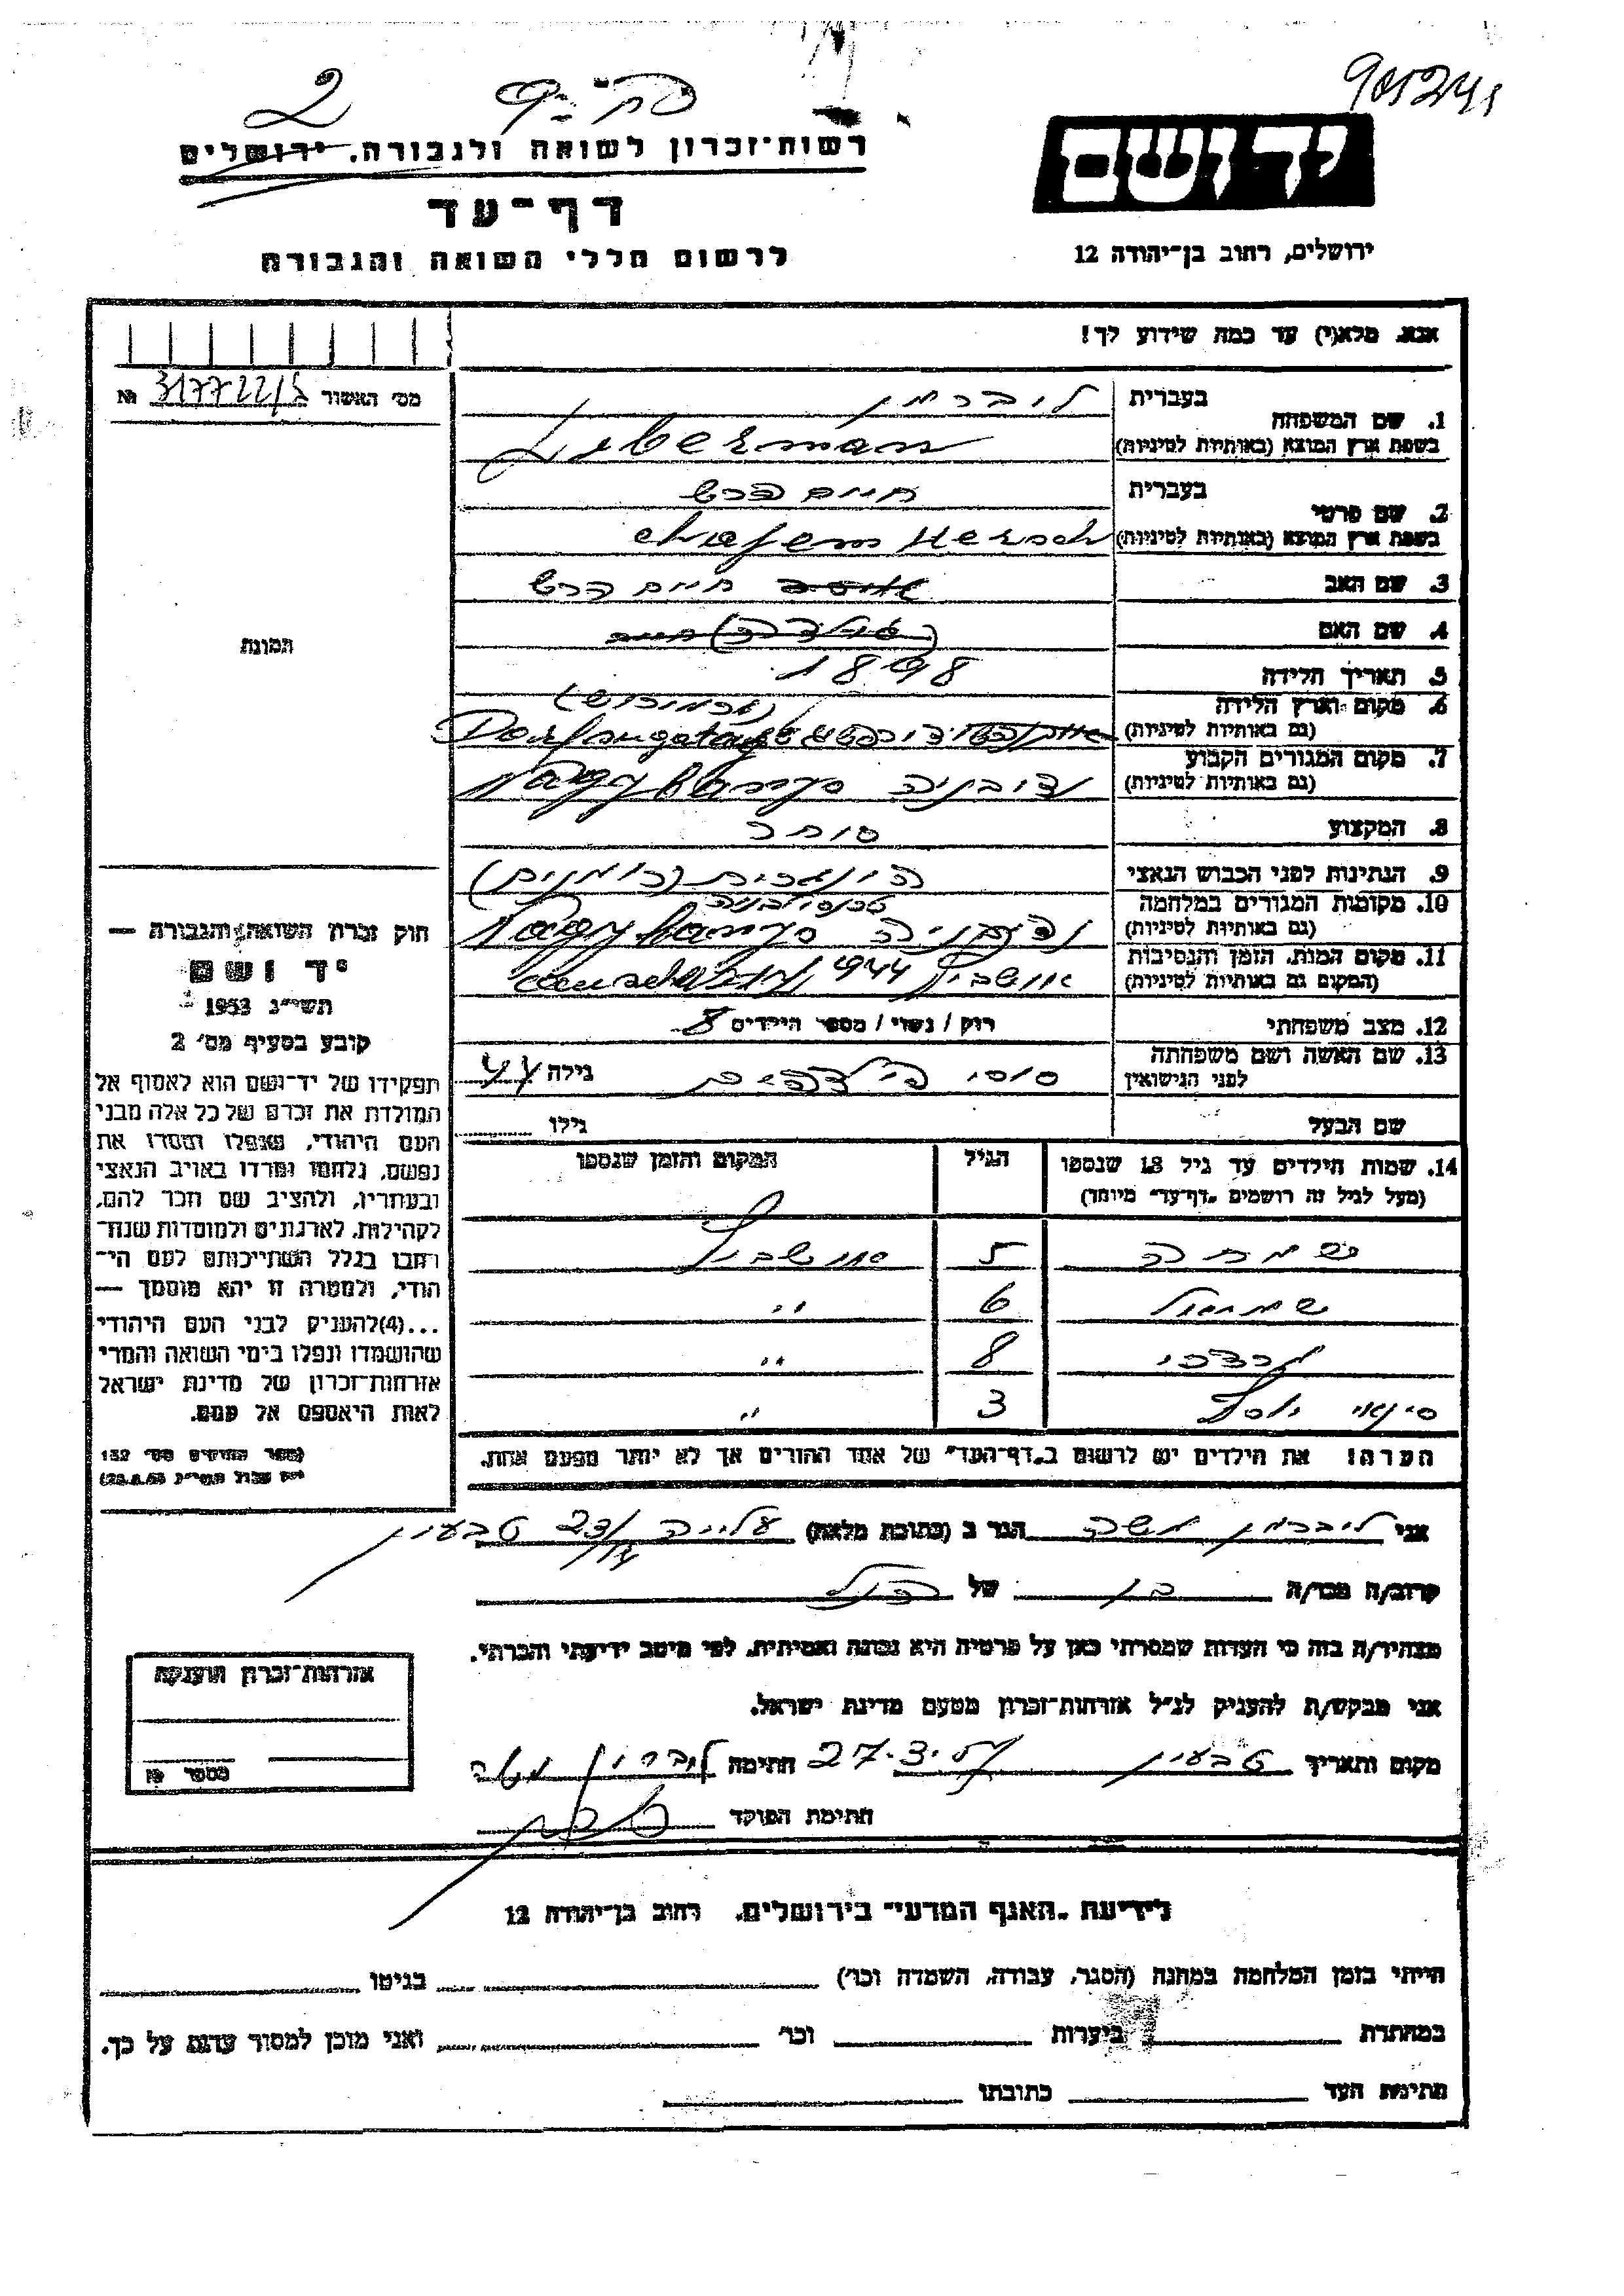 2
רשות־זכרון לשואה ולגבורה, ירושלים
דף־עד
לרשום חללי השואה והגבורה
יד ושם
ירושלים, רחוב בן־יהודה 12
אנא, מלא(י) עד כמה שידוע לך!
מס׳ האשור 317722/5 №
1. שם המשפחה
בעברית ליברמן
בשפת ארץ המוצא (באותיות לטיניות) Liberman
2. שם פרטי
בעברית חיים הרש
בשפת ארץ המוצא (באותיות לטיניות) Chajem Hersch
3. שם האב חיים הרש
4. שם האם
5. תאריך הלידה 1898
6. מקום וארץ הלידה (מרמורש)
(גם באותיות לטיניות)
7. מקום המגורים הקבוע
(גם באותיות לטיניות) נדיבניה Nagybanya
8. המקצוע סוחר
9. הנתינות לפני הכבוש הנאצי הונגרית (רומנים)
10. מקומות המגורים במלחמה טרנסילבניה
(גם באותיות לטיניות) Nagybanya
11. מקום המות, הזמן והנסיבות
(המקום גם באותיות לטיניות) אושביץ 1944
12. מצב משפחתי רוק / נשוי / מספר הילדים 8
13. שם האשה ושם משפחתה
לפני הנישואין סוסי גילה 44
שם הבעל גילו
14. שמות הילדים עד גיל 18 שנספו הגיל המקום והזמן שנספו
(מעל לגיל זה רושמים „דף־עד״ מיוחד)
שמחה 5 אושביץ
שמואל 6 ״
מרדכי 8 ״
סיגאי יוסף 3 ״
הערה: את הילדים יש לרשום ב„דף־העד״ של אחד ההורים אך לא יותר מפעם אחת.
תמונה
חוק זכרון השואה והגבורה —
יד ושם
תשי״ג 1953
קובע בסעיף מס׳ 2
תפקידו של יד־ושם הוא לאסוף אל
המולדת את זכרם של כל אלה מבני
העם היהודי, שנפלו ומסרו את
נפשם, נלחמו ומרדו באויב הנאצי
ובעוזריו, ולהציב שם וזכר להם,
לקהילות, לארגונים ולמוסדות שנח־
רבו בגלל השתייכותם לעם הי־
הודי, ולמטרה זו יהא מוסמך —
...(4)להעניק לבני העם היהודי
שהושמדו ונפלו בימי השואה והמרי
אזרחות־זכרון של מדינת ישראל
לאות היאספם אל עמם.
(ספר החוקים מס׳ 132
אני ליברמן משה הגר ב (כתובת מלאה) עלייה 23/ טבעון
קרוב/ה מכר/ה בן של הנ״ל
מצהיר/ה בזה כי העדות שמסרתי כאן על פרטיה היא נכונה ואמיתית, לפי מיטב ידיעתי והכרתי.
אני מבקש/ת להעניק לנ״ל אזרחות־זכרון מטעם מדינת ישראל.
מקום ותאריך טבעון 27.3.57 חתימה ליברמן משה
חתימת הפוקד
אזרחות־זכרון הוענקה
מספר №
לידיעת „האגף המדעי״ בירושלים, רחוב בן־יהודה 12
הייתי בזמן המלחמה במחנה (הסגר, עבודה, השמדה וכו׳) בגיטו
במחתרת ביערות וכו׳ ואני מוכן למסור עדות על כך.
חתימת העד כתובתו